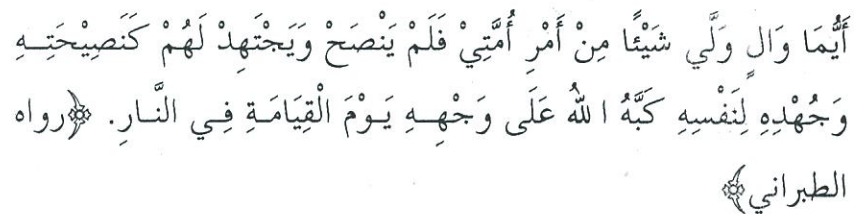 أَيُّمَا وَالٍ وَلَّي شَيْئًا مِنْ أَمْرِ أُمَّتِيْ فَلَمْ يَنْصَحْ وَيَجْتَهِدْ لَهُمْ كَنَصِيْحَتِـهِ
وَجُهْدِهِ لِنَفْسِهِ كَبَّهُ اللهُ عَلَى وَجْهِـهِ يَـوْمَ الْقِيَامَـةِ فِـي النَّـارِ. ﴿رواه
الطبراني﴾